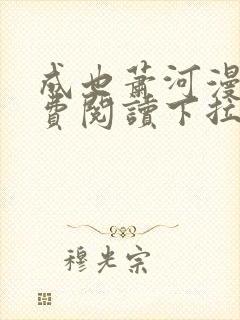 成也萧河漫
费阅讀下拉
穆光宗